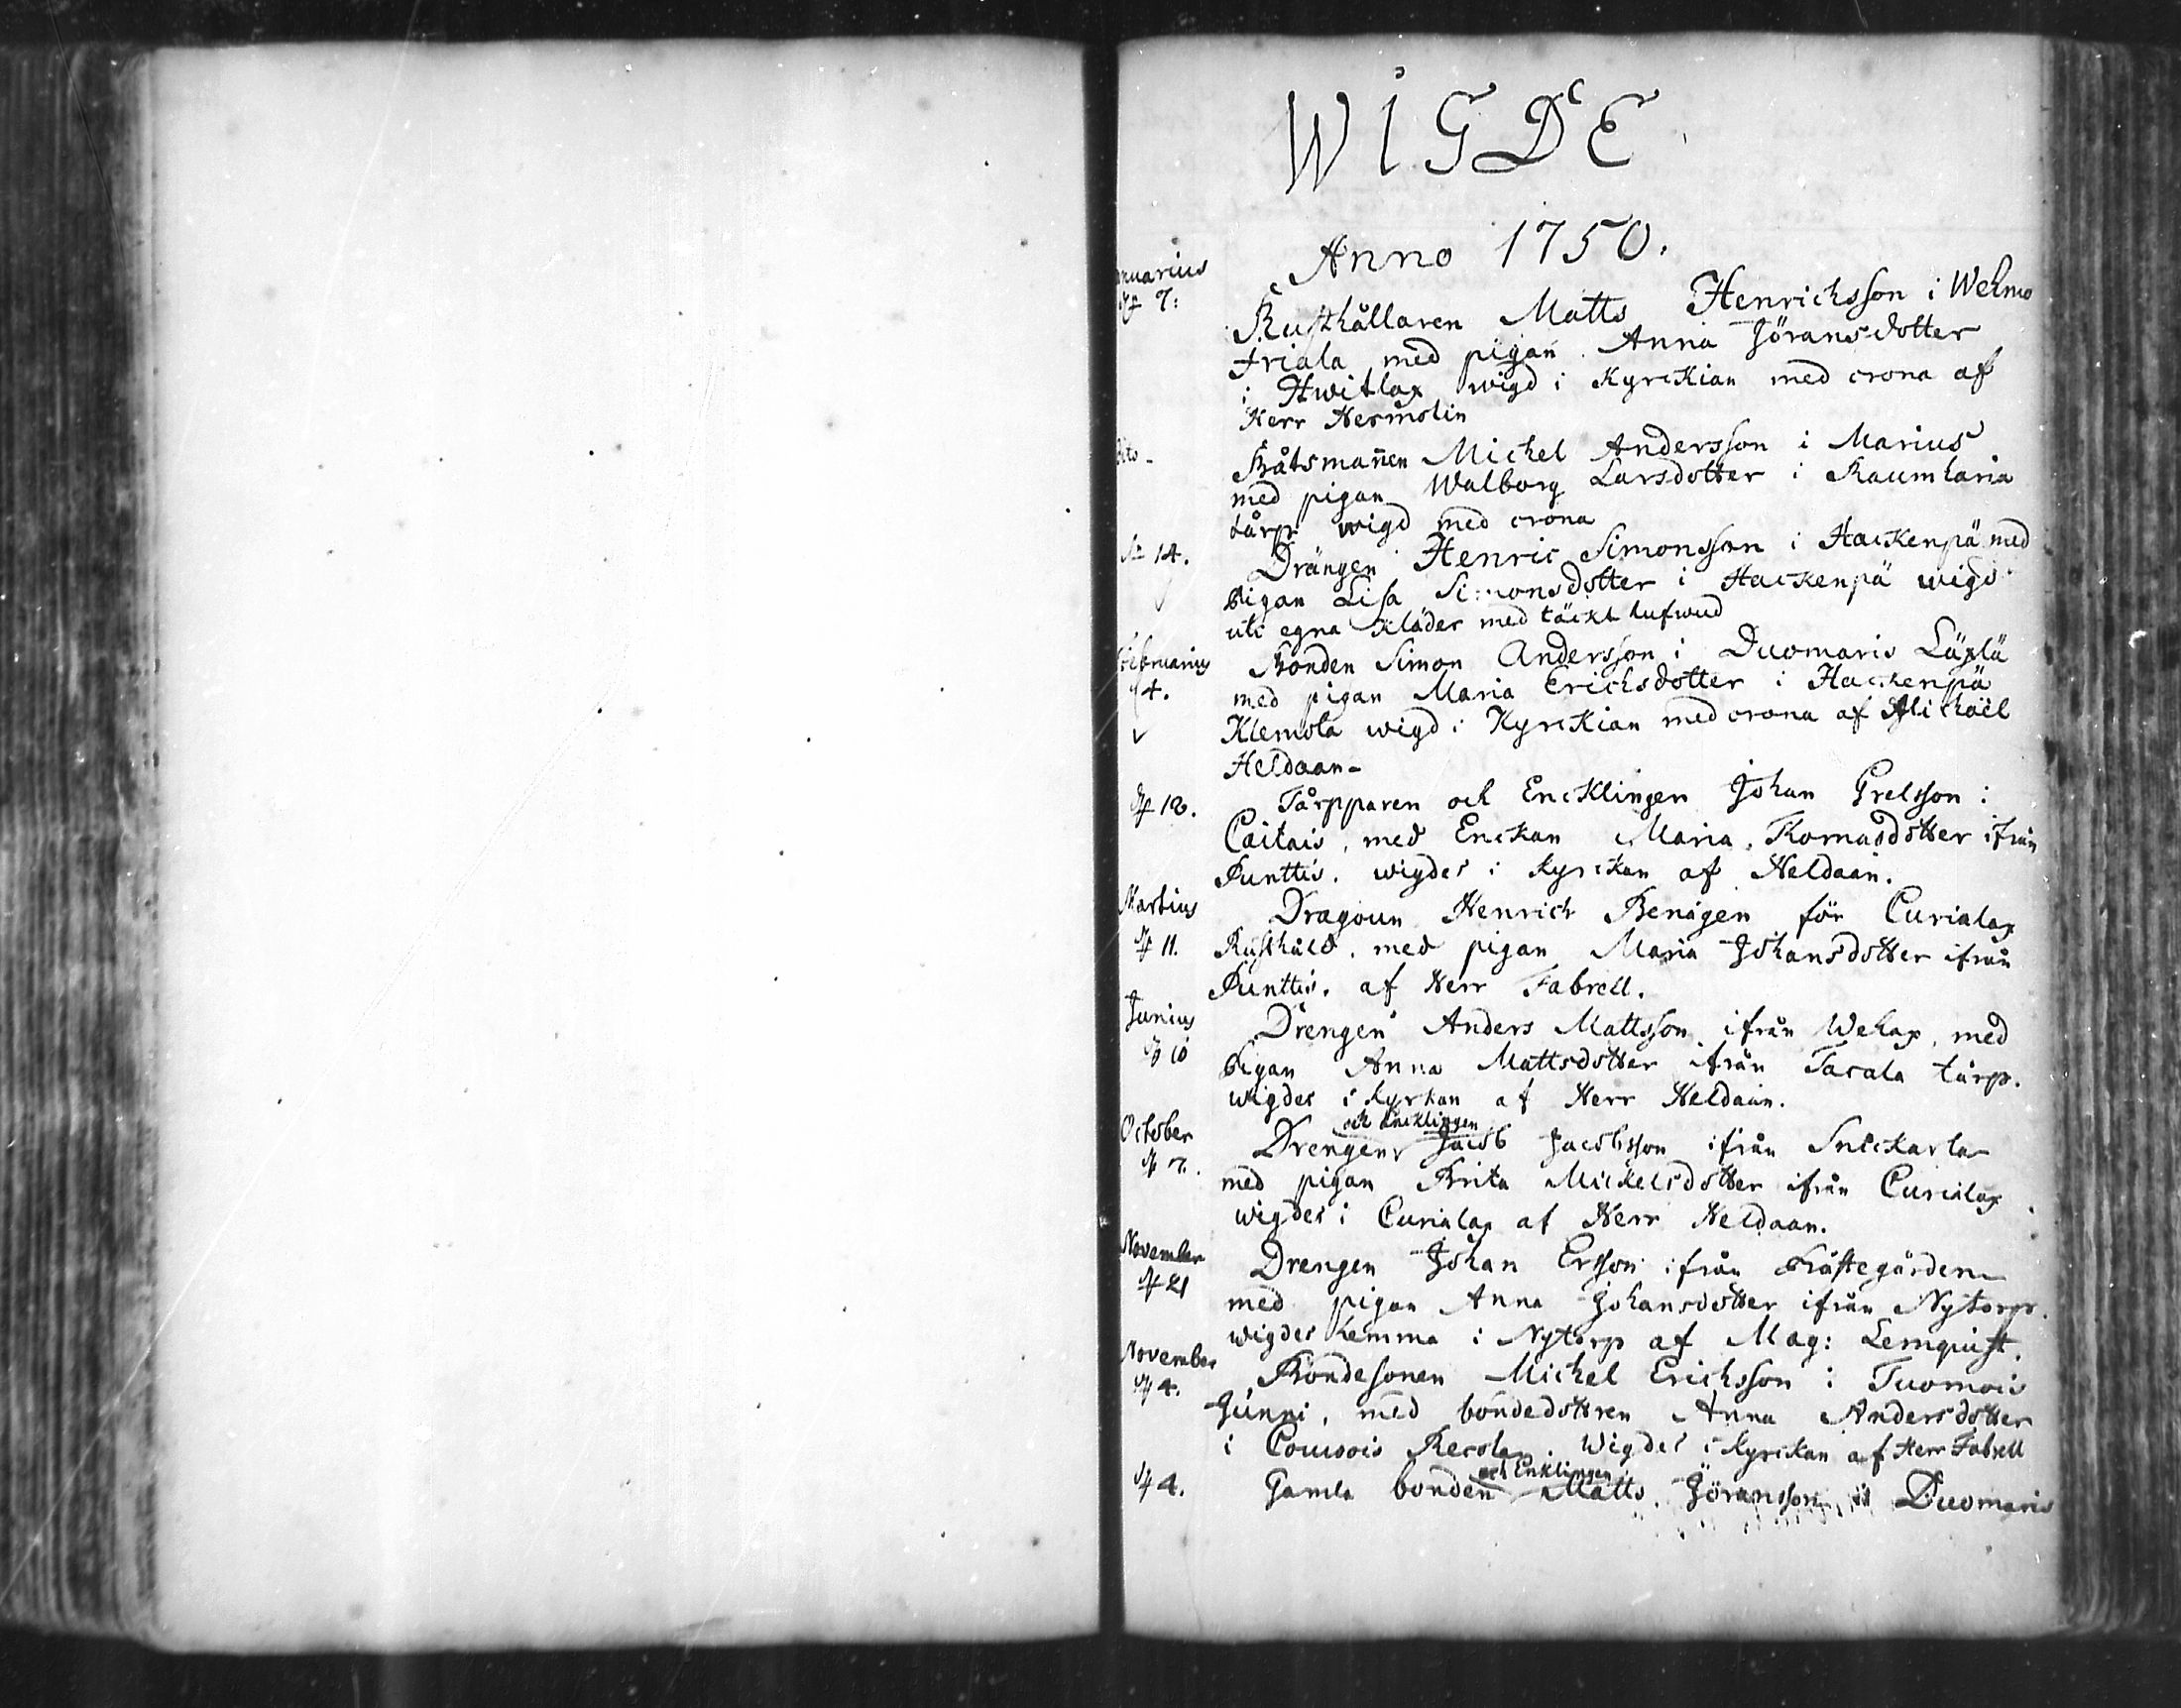 WIGDE
Anno 1750.
anuarius
7:
Rusthållaren Matts Henrichsson i Wehmo
Friala med pigan Anna Jöransdotter
i Hwitlax wigd i KyrcKian med crona af
Herr Hermolin
dito -
Båtsmannen Michel Andersson i Marius
med pigan Walborg Larsdotter i Raumharia
tårp wigd med crona
14.
Drängen Henric Simonsson i Hackenpä med
Pigan Lisa Simonsdotter i Hackenpä wigd
uti egna Kläder med täckt hufwud
Februarius
4.
Bonden Simon Andersson i Duomaris Läxlä
med pigan Maria Erichsdotter i Hackenpä
Klemola wigd i KyrcKian med crona af Michaël
Heldaan -
12.
Tårpparen och EncKlingen Johan Grelsson i
Caitais, med Enckan Maria Thomasdotter ifrån
Punttis. wigdes i kyrckan af Heldaan.
Martius
11.
Dragoun Henrich Benägen för Curialax
Rusthåld, med pigan Maria Johansdotter ifrån
Punttis. af Herr Fabrell.
Junius
10
Drengen Anders Mattsson ifrån Wehax, med
Pigan Anna Mattsdotter ifrån Tacala tårp.
wigdes i kyrkan af Herr Heldaan.
October
7.
och Äncklingen
Drengen Jacob Jacobsson ifrån Snickarla
med pigan Brita Mickelsdotter ifrån Curialax
wigdes i Curialax af Herr Heldaan.
November
21
Drengen Johan Ersson ifrån Prästegården
med pigan Anna Johansdotter ifrån Nytorp.
wigdes hemma i Nytorp af Mag: Lemquist.
November
4.
Bondesonen Michel Erichsson i Tuomois
Junni, med bondedottren Anna Andersdotter
i Couwois Recola. Wigdes i kyrckan af Herr Fabrell
4.
och Enklingen
Gamla bonden Matts Jöransson i Duomaris